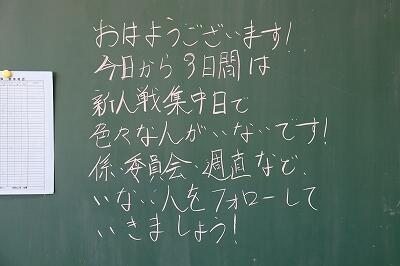 おはようございます!
今日から3日間は
新人戦集中日で
色々な人がいないです!
係・委員会・週直など、
いない人をフォローして
いきましょう!